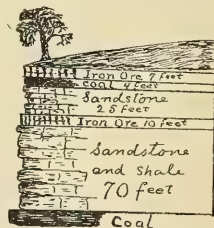 Iron Ore 7 feet
Coal 4 feet
Sandstone
25 feet
Iron Ore 10 feet
Sandstone
and shale
70 feet
Coal